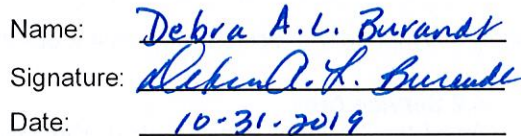 Name: Debra A.L. Burandt
Signature: Debra A. L. Burandt
Date: 10-31-2019